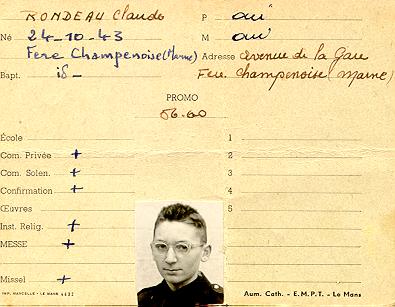 RONDEAU Claude
P oui
Né 24-10-43
M oui
Fere Champenoise (Marne)
Adresse avenue de la Gare
Bapt. id-
Fere Champenoise (Marne)
PROMO
56.60
École
1
Com. Privée +
2
Com. Solen. +
3
Confirmation +
4
Œuvres
5
Inst. Relig. +
MESSE +
Missel +
IMP. MARCELLE - LE MANS
Aum. Cath. - E.M.P.T. - Le Mans